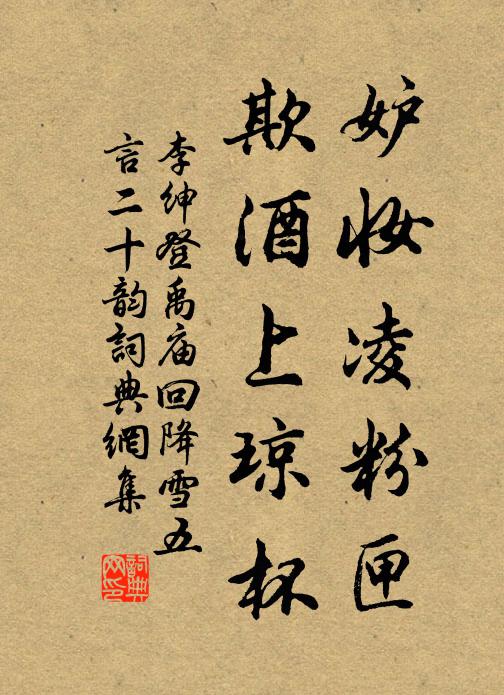 妒妆凌粉匣
欺酒上琼杯
李绅登禹庙回降雪五
言二十韵詞典網集
詞典
网印